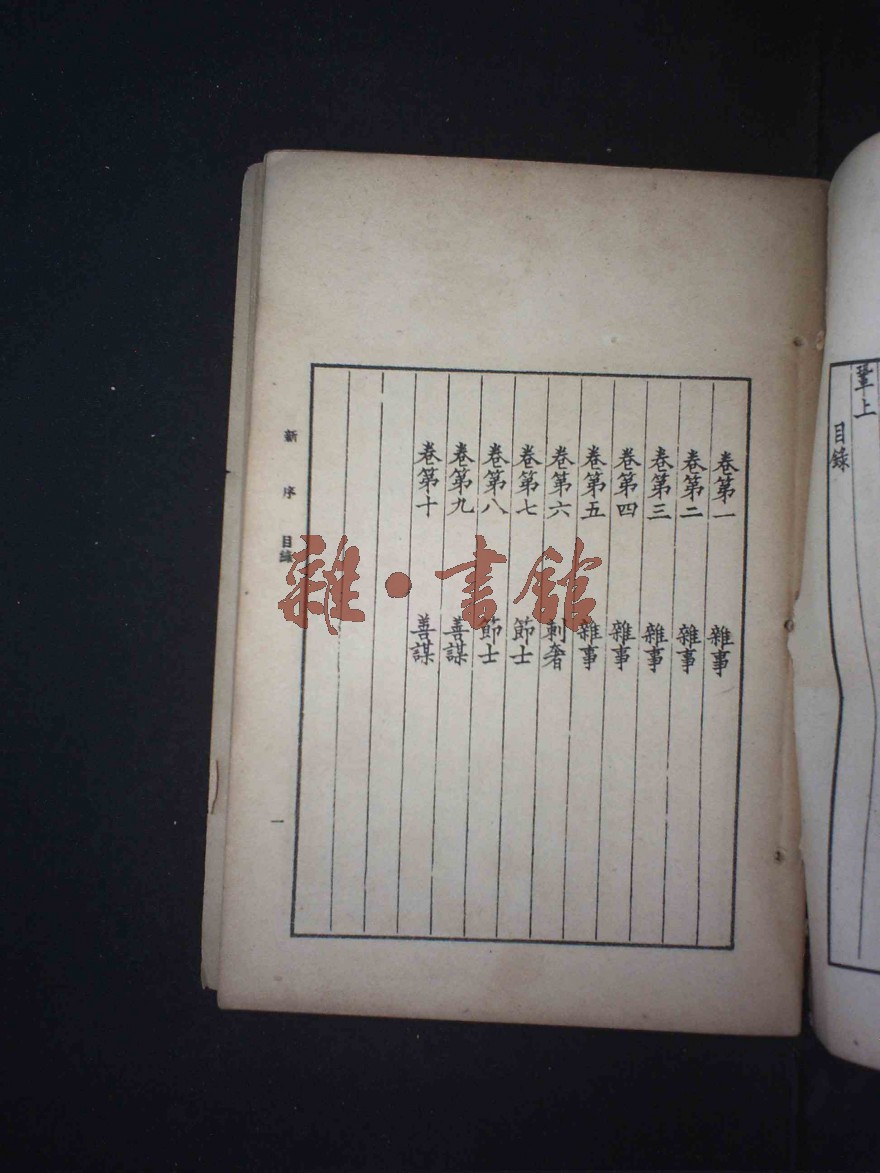 鞏上
目錄
卷第一 雜事
卷第二 雜事
卷第三 雜事
卷第四 雜事
卷第五 雜事
卷第六 刺奢
卷第七 節士
卷第八 節士
卷第九 善謀
卷第十 善謀
新序 目錄
一
雜·書館